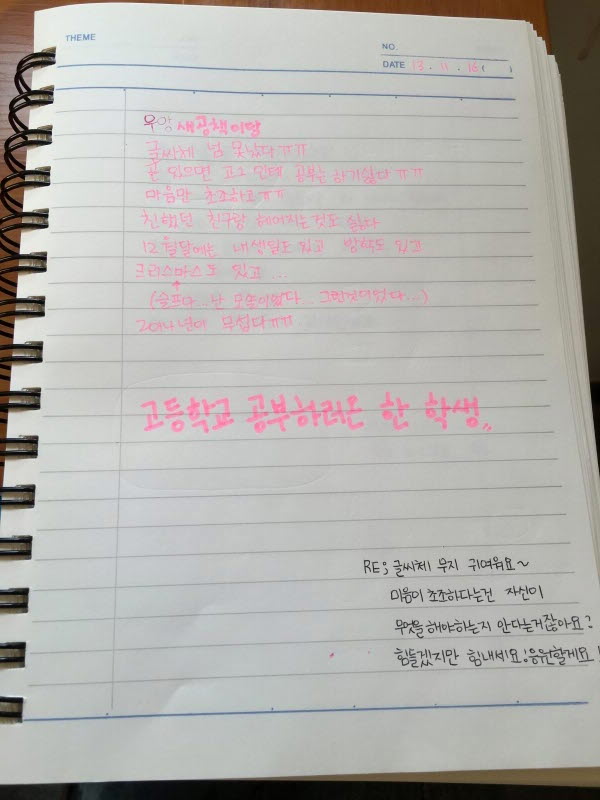 THEME
NO.
DATE 13 . 11 . 16 ( )
우앙 새공책이당
글씨체 넘 못났다ㅠㅠ
곧 있으면 고2 인데 공부는 하기싫다 ㅠㅠ
마음만 초조하고ㅠㅠ
친했던 친구랑 헤어지는것도 싫다
12월달에는 내생일도 있고 방학도 있고
크리스마스도 있고 ...
(슬프다... 난 모쏠이었다.. 그런것이었다...)
2014년이 무섭다ㅠㅠ
고등학교 공부하러온 한 학생,,
RE; 글씨체 무지 귀여워요~
마음이 초조하다는건 자신이
무엇을 해야하는지 안다는거잖아요?
힘들겠지만 힘내세요! 응원할게요!